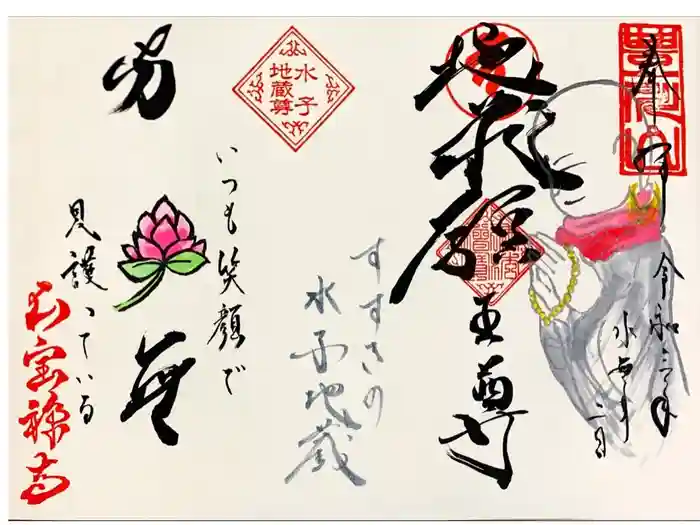 奉拝
令和三年
水無月
二日
地蔵願王尊
すすきの
水子地蔵
水子
地蔵尊
いつも笑顔で
見護っている
玉宝禅寺